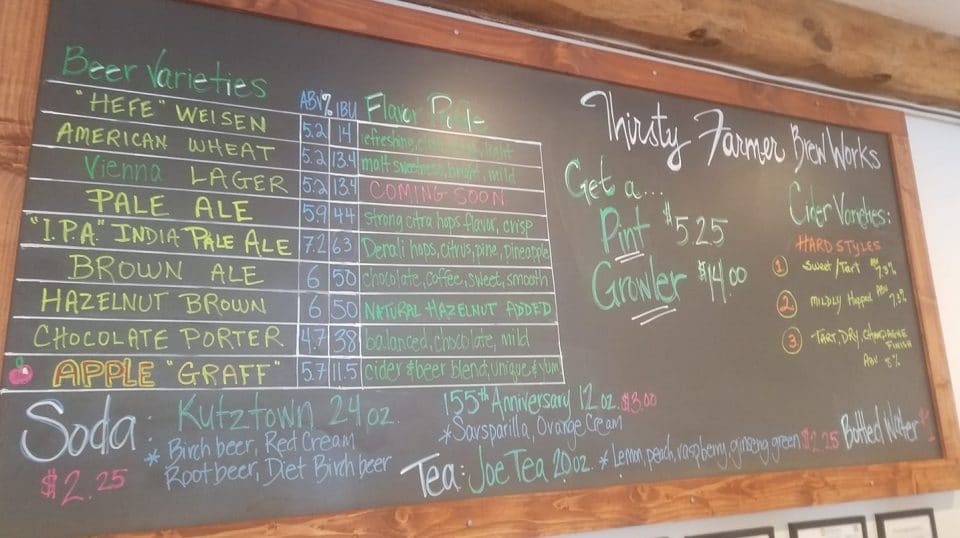 Beer Varieties ABV% IBU Flavor
"HEFE" WEISEN 5.2 14 refreshing, light
AMERICAN WHEAT 5.2 13.4 malt sweetness, bright, mild
Vienna LAGER 5.2 13.4 COMING SOON
PALE ALE 5.9 44 strong citra hops flavor, crisp
"I.P.A." INDIA PALE ALE 7.2 63 Denali hops, citrus, pine, pineapple
BROWN ALE 6 50 chocolate, coffee, sweet, smooth
HAZELNUT BROWN 6 50 NATURAL HAZELNUT ADDED
CHOCOLATE PORTER 4.7 38 balanced, chocolate, mild
APPLE "GRAFF" 5.7 11.5 cider & beer blend, unique & yum
Thirsty Farmer Brew Works
Get a...
Pint $5.25
Growler $14.00
Cider Varieties:
HARD STYLES
1 Sweet/Tart ABV 7.3%
2 MILDLY Hopped ABV 7.3%
3 TART, DRY, CHAMPAGNE
FINISH
ABV 8%
Soda: Kutztown 24 oz.
* Birch beer, Red Cream
Root beer, Diet Birch beer
$2.25
155th Anniversary 12 oz. $3.00
* Sarsparilla, Orange Cream
Tea: Joe Tea 20 oz. * Lemon, peach, raspberry, ginseng green $2.25
Bottled Water $1